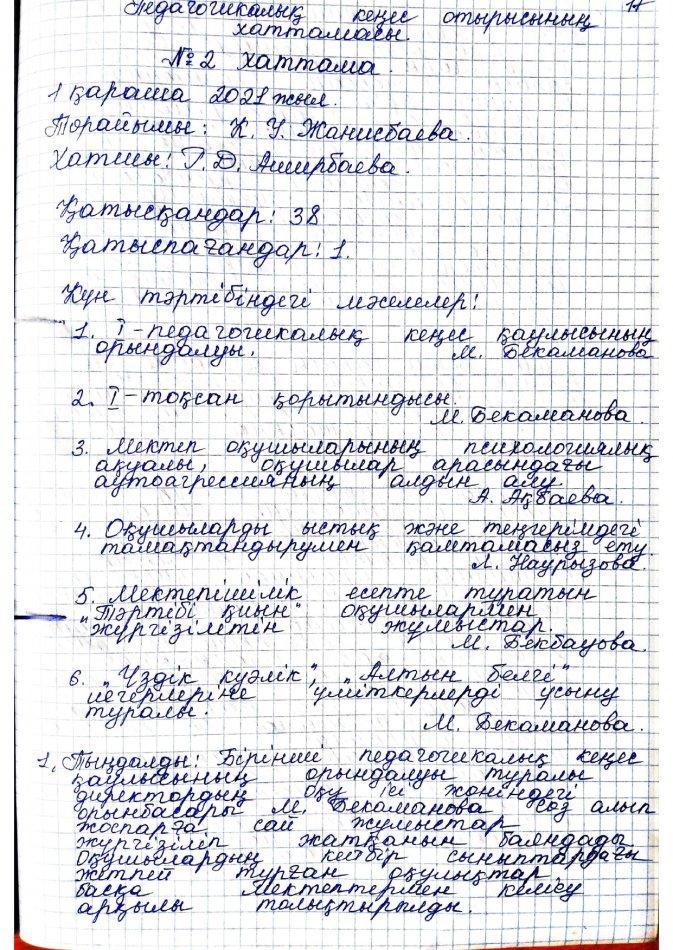 17
Педагогикалық кеңес отырысының
хаттамасы.
№2 хаттама.
1 қараша 2021 жыл.
Төрайымы: К. У. Жанисбаева.
Хатшы: Г. Д. Аширбаева.
Қатысқандар: 38
Қатыспағандар: 1.
Күн тәртібіндегі мәселелер:
1. I-педагогикалық кеңес қаулысының
орындалуы. М. Бекаманова
2. I-тоқсан қорытындысы.
М. Бекаманова.
3. Мектеп оқушыларының психологиялық
ақуалы, оқушылар арасындағы
аутоагрессияның алдын алу.
А. Ақбаева.
4. Оқушыларды ыстық және теңгерімдегі
тамақтандырумен қамтамасыз ету.
Л. Наурызова.
5. Мектепішілік есепте тұратын
"Тәртібі қиын" оқушылармен
жүргізілетін жұмыстар.
М. Бекбауова.
6. "Үздік куәлік", "Алтын белгі"
иегерлеріне үміткерлерді ұсыну
туралы.
М. Бекаманова.
1. Тыңдалды: Бірінші педагогикалық кеңес
қаулысының орындалуы туралы
директордың оқу ісі жөніндегі
орынбасары М. Бекаманова сөз алып
жоспарға сай жұмыстар
жүргізіліп жатқанын баяндады
Оқушылардың кейбір сыныптардағы
жетпей тұрған оқулықтар
басқа мектептермен келісу
арқылы толықтырылды.